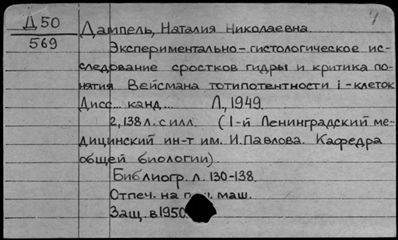 Д 50
569
Дампель, Наталия Николаевна.
Экспериментально-гистологическое ис-
следование сростков гидры и критика по-
нятия Вейсмана тотипотентности i-клеток
Дисс... канд... Л, 1949.
2,138 л. с илл. (1-й Ленинградский ме-
дицинский ин-т им. И.Павлова. Кафедра
общей биологии).
Библиогр. л. 130-138.
Отпеч. на маш.
Защ. в 1950